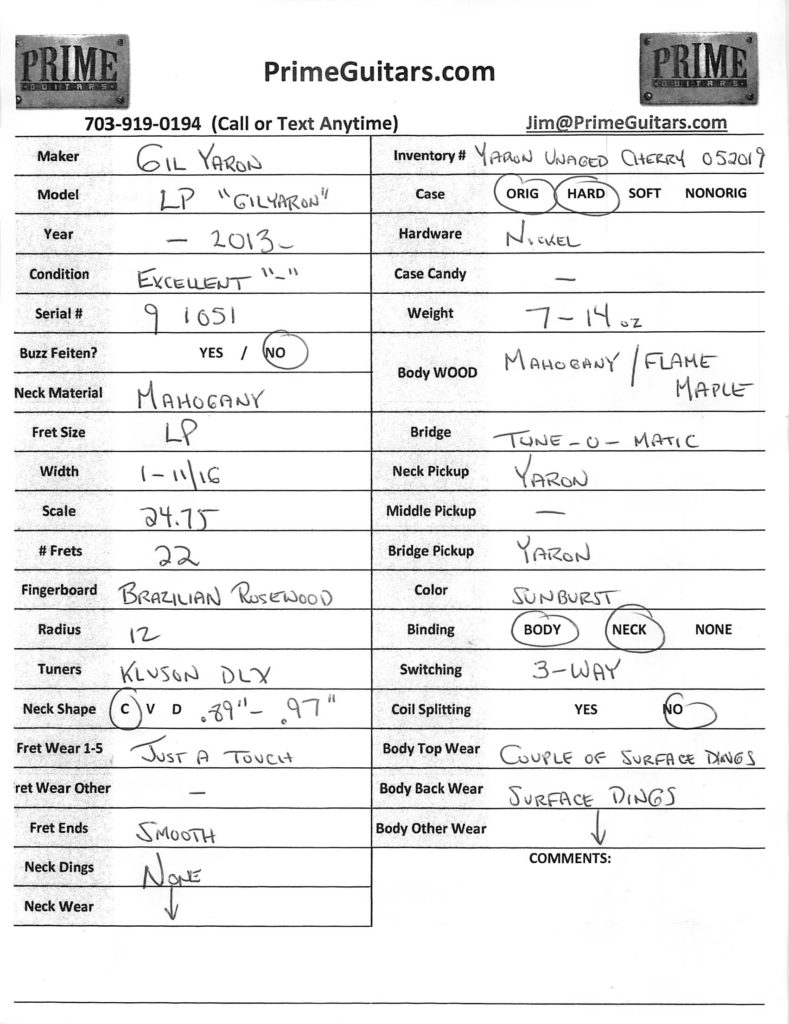 PRIME
GUITARS
PrimeGuitars.com
PRIME
GUITARS
703-919-0194 (Call or Text Anytime)
Jim@PrimeGuitars.com
Maker GIL YARON
Model LP "GILYARON"
Year – 2013 –
Condition EXCELLENT "-"
Serial # 9 1051
Buzz Feiten? YES / NO
Neck Material MAHOGANY
Fret Size LP
Width 1-11/16
Scale 24.75
# Frets 22
Fingerboard BRAZILIAN ROSEWOOD
Radius 12
Tuners KLUSON DLX
Neck Shape C V D .89"- .97"
Fret Wear 1-5 JUST A TOUCH
ret Wear Other —
Fret Ends SMOOTH
Neck Dings NONE
Neck Wear ↓
Inventory # YARON UNAGED CHERRY 052019
Case ORIG HARD SOFT NONORIG
Hardware NICKEL
Case Candy —
Weight 7-14 oz
Body WOOD MAHOGANY / FLAME
MAPLE
Bridge TUNE-O-MATIC
Neck Pickup YARON
Middle Pickup —
Bridge Pickup YARON
Color SUNBURST
Binding BODY NECK NONE
Switching 3-WAY
Coil Splitting YES NO
Body Top Wear COUPLE OF SURFACE DINGS
Body Back Wear SURFACE DINGS
Body Other Wear ↓
COMMENTS: